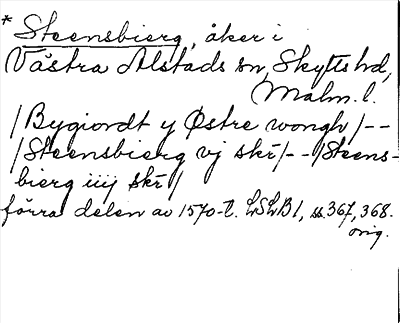 * Steensbierg, åker i
Västra Alstads sn, Skytts hd,
Malm. l.
/Bygiordt y Østre wongh/--
/Steensbierg vj skr/--/Steens-
bierg iiij skr/
förra delen av 1570-t. LSLB1, ss. 367, 368.
orig.